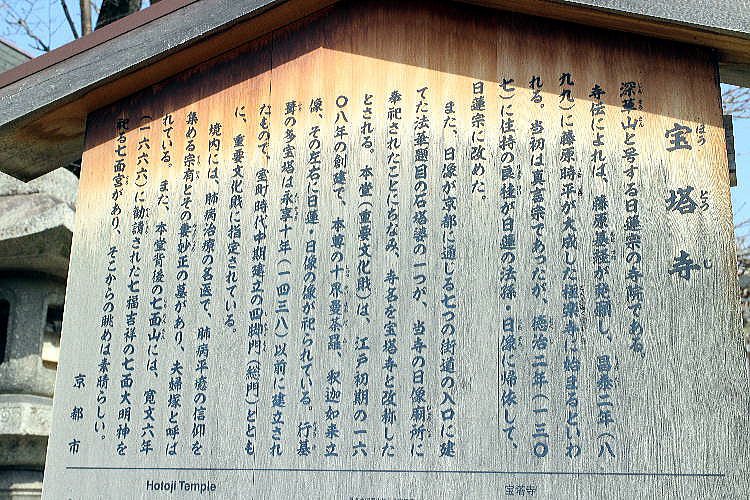 宝塔寺
深草山と号する日蓮宗の寺院である。
寺伝によれば、藤原基経が発願し、昌泰二年（八
九九）に藤原時平が大成した極楽寺に始まるといわ
れる。当初は真言宗であったが、徳治二年（一三〇
七）に住持の良桂が日蓮の法孫・日像に帰依して、
日蓮宗に改めた。
また、日像が京都に通じる七つの街道の入口に建
てた法華題目の石塔婆の一つが、当寺の日像廟所に
奉祀されたことにちなみ、寺名を宝塔寺と改称した
とされる。本堂（重要文化財）は、江戸初期の一六
〇八年の創建で、本尊の十界曼荼羅、釈迦如来立
像、その左右に日蓮・日像の像が祀られている。行基
葺の多宝塔は永享十年（一四三八）以前に建立され
たもので、室町時代中期建立の四脚門（総門）ととも
に、重要文化財に指定されている。
境内には、肺病治療の名医で、肺病平癒の信仰を
集める宗有とその妻妙正の墓があり、夫婦塚と呼ば
れている。また、本堂背後の七面山には、寛文六年
（一六六六）に勧請された七福吉祥の七面大明神を
祀る七面宮があり、そこからの眺めは素晴らしい。
京都市
Hotoji Temple
宝塔寺